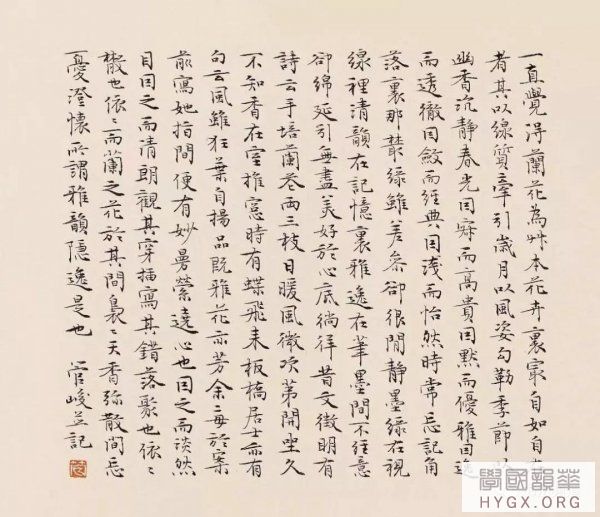 一直覺得蘭花為艸本花卉裏最自如自在
者其以線質牽引歲月以風姿勾勒季節
幽香流靜春光因寂而高貴因默而優雅因逸
而透徹因斂而經典因淺而怡然時常忘記角
落裏那叢綠雖差參卻很閒靜墨綠在視
線裡清韻在記憶裏雅逸在筆墨間不經意
卻綿延引無盡美好於心底徜徉昔文徵明有
詩云手培蘭花兩三枝日暖風微次第開坐久
不知香在室推窗時有蝶飛來板橋居士亦有
句云風雖狂葉自揚品既雅花亦芳余每於案
前寫她指間便有妙曼縈遶心也因之而淡然
目因之而清朗觀其穿插寫其錯落聚也依〻
散也依〻而蘭之花於其間裊〻天香弥散間忘
憂澄懷所謂雅韻隱逸是也 管峻並記
學國韻華
HYGX.ORG